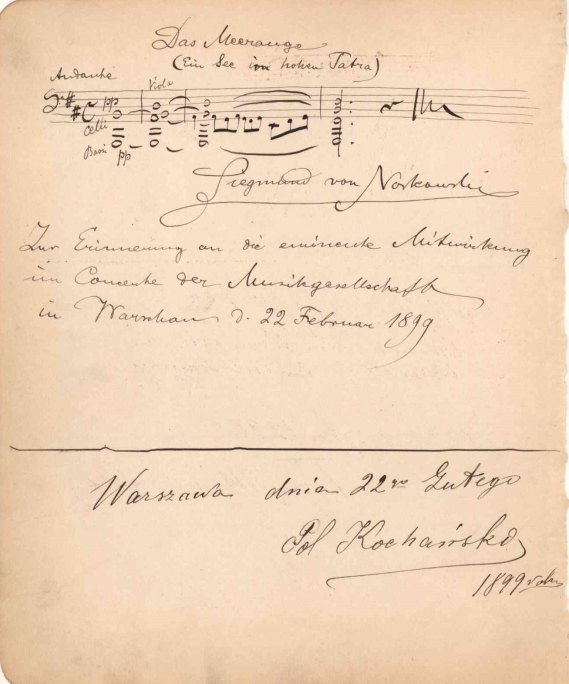 Das Meerauge
(Ein See im hohen Tatra)
Andante
Viola
pp
Celli
Bassi pp
Siegmund von Noskowski
Zur Erinnerung an die eminente Mitwirkung
im Concerte der Musikgesellschaft
in Warschau d. 22 Februar 1899
Warszawa dnia 22go Lutego
Pol Kochański
1899 roku